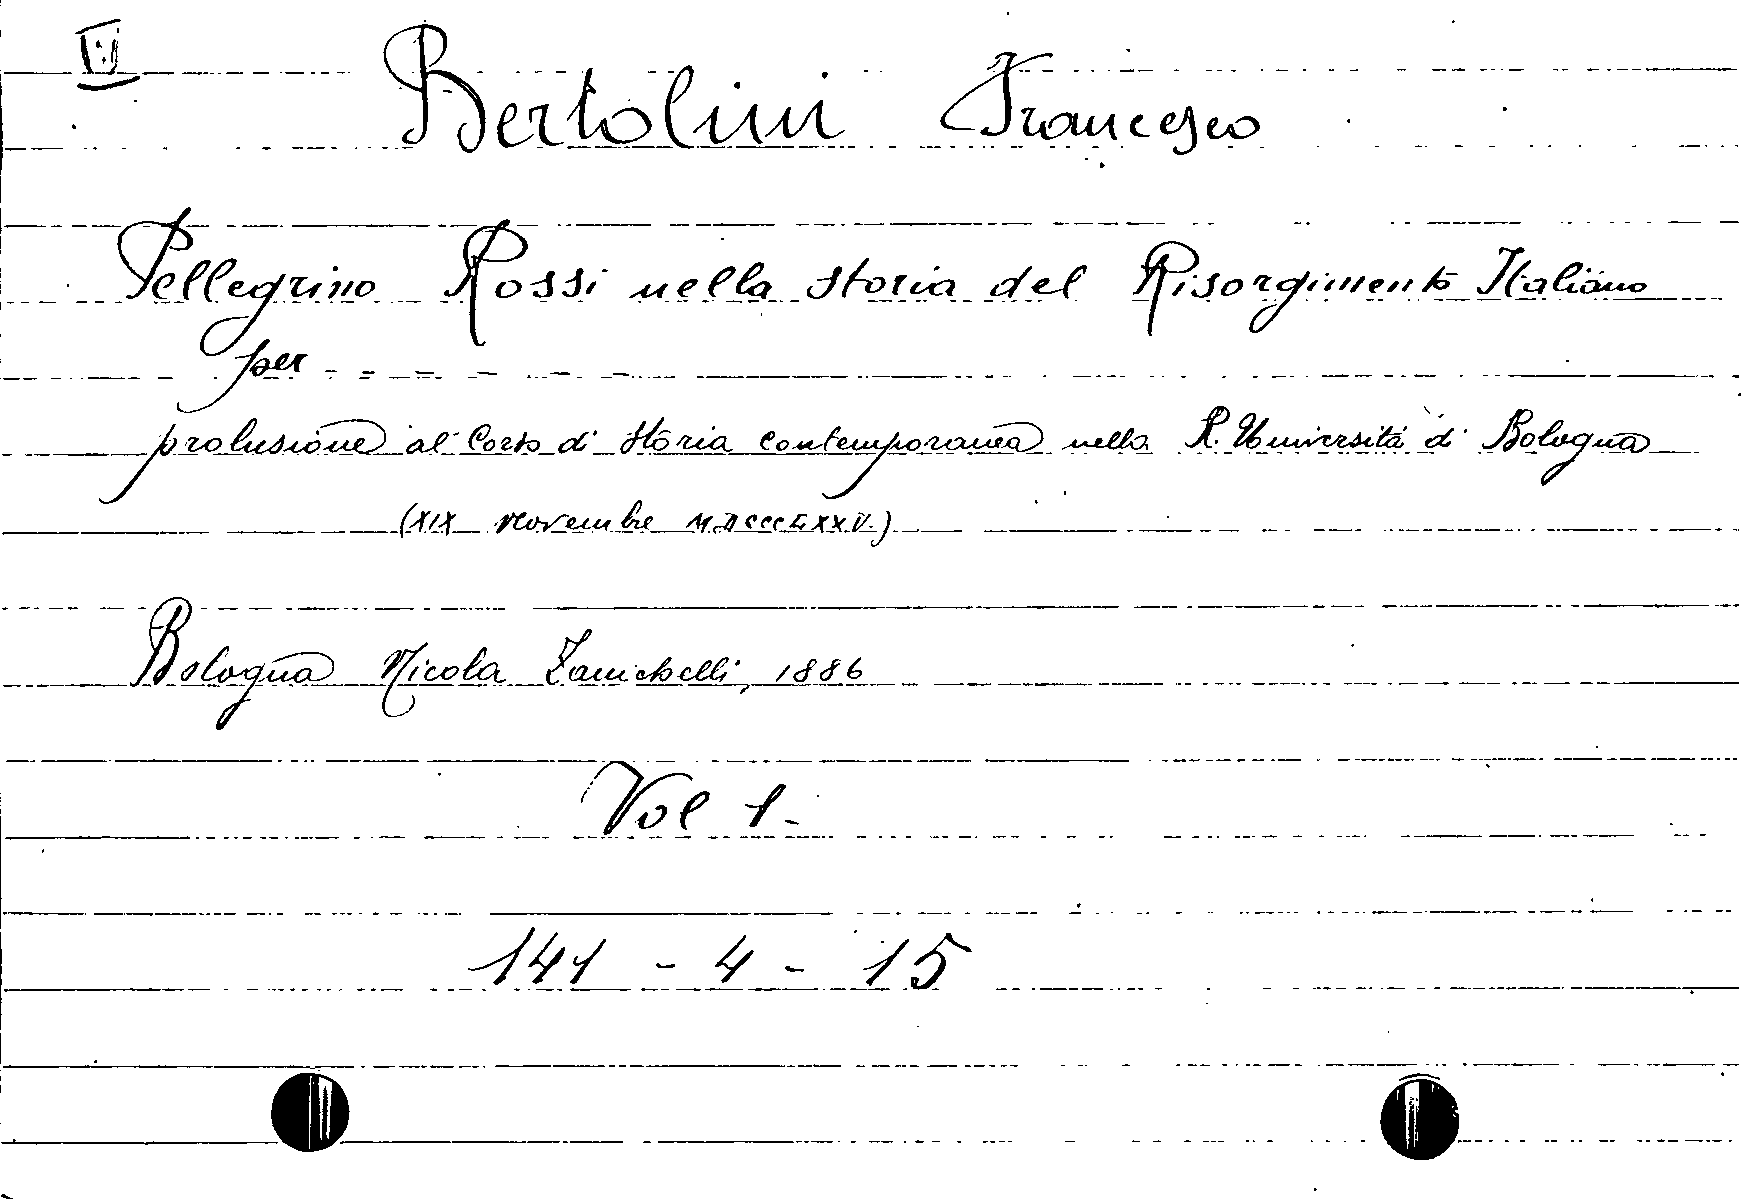 Bertolini Francesco
Pellegrino Rossi nella storia del Risorgimento Italiano
per - - - - - -
prolusione al Corso di storia contemporanea nella R. Università di Bologna
(XIX Novembre MDCCCLXXXV.)
Bologna Nicola Zanichelli, 1886
Vol 1.
141 - 4 - 15